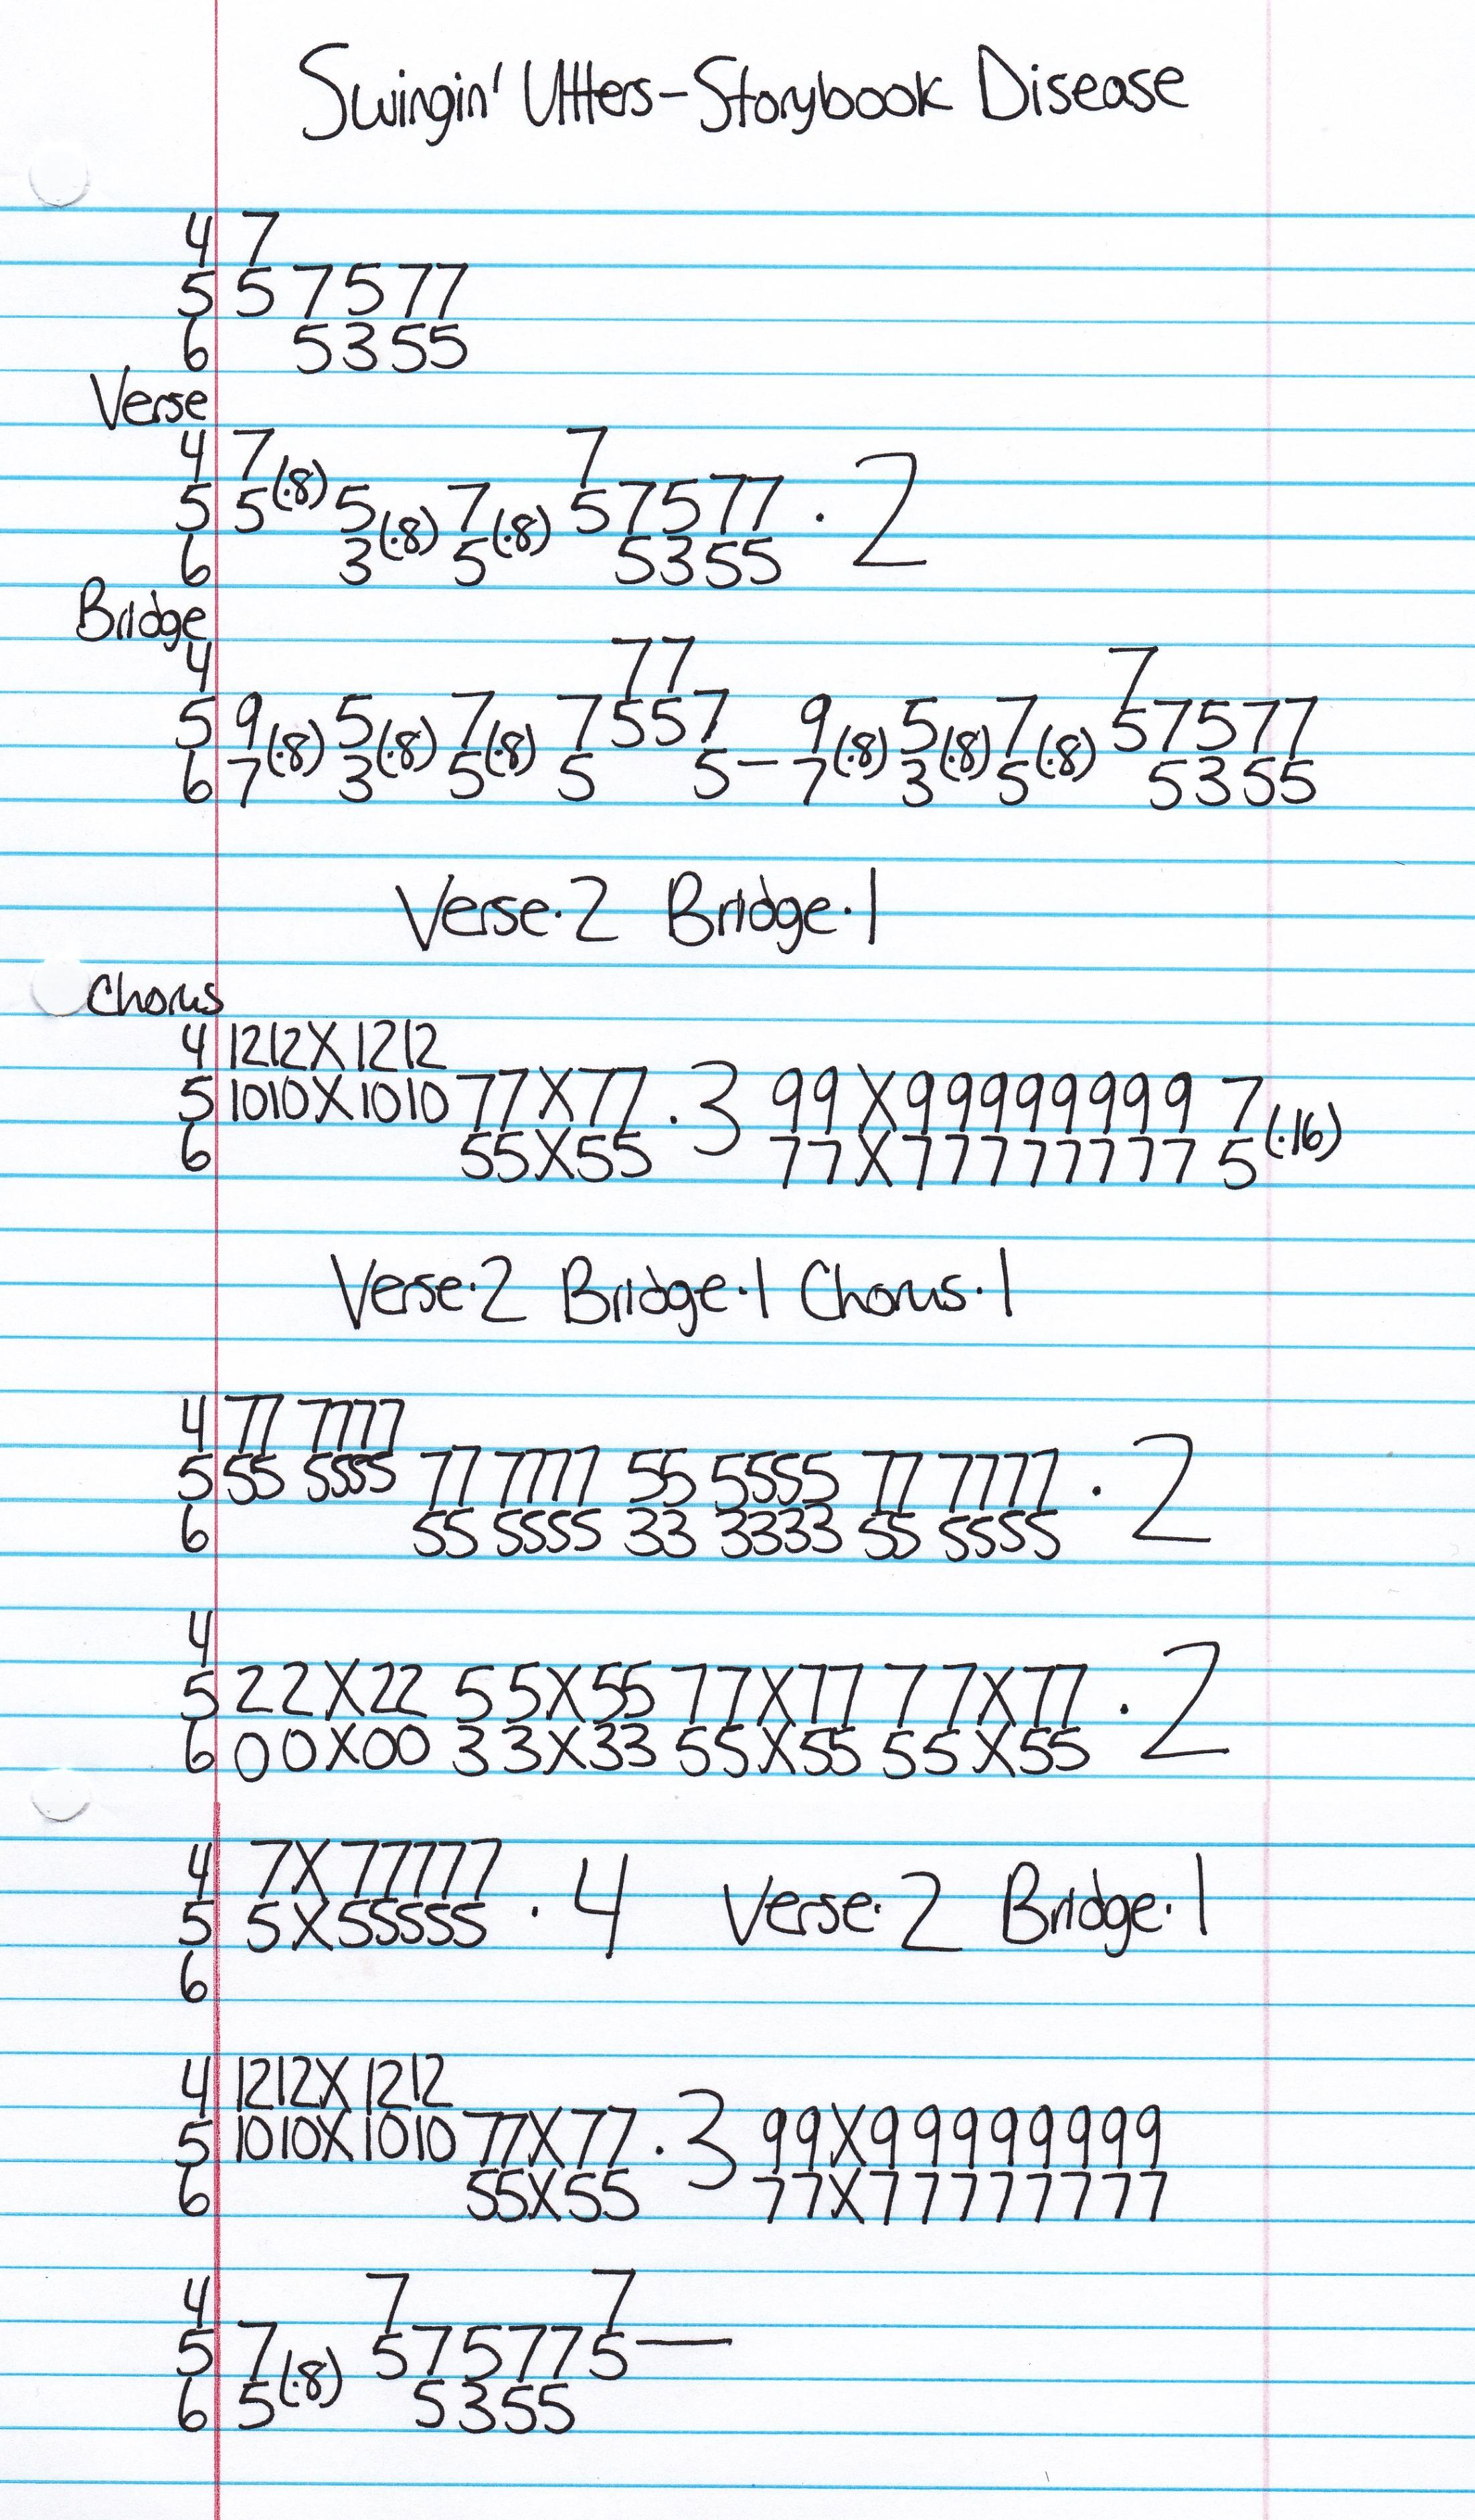 Swingin' Utters-Storybook Disease
4 7
5 5 7 5 7 7
6 5 3 5 5
Verse
4 7 7
5 5(·8) 5 7 5 7 5 7 7 · 2
6 3(·8) 5(·8) 5 3 5 5
Bridge
4 7 7 7
5 9 5 7 7 5 5 7 9 5 7 5 7 5 7 7
6 7(·8) 3(·8) 5(·8) 5 5 – 7(·8) 3(·8) 5(·8) 5 3 5 5
Verse·2 Bridge·1
Chorus
4 12 12 X 12 12
5 10 10 X 10 10 7 7 X 7 7 · 3 9 9 X 9 9 9 9 9 9 9 9 7
6 5 5 X 5 5 7 7 X 7 7 7 7 7 7 7 7 5(·16)
Verse·2 Bridge·1 Chorus·1
4 77 7777
5 55 5555 77 7777 55 5555 77 7777 · 2
6 55 5555 33 3333 55 5555
4
5 2 2 X 2 2 5 5 X 5 5 7 7 X 7 7 7 7 X 7 7 · 2
6 0 0 X 0 0 3 3 X 3 3 5 5 X 5 5 5 5 X 5 5
4 7 X 7 7 7 7 7
5 5 X 5 5 5 5 5 · 4 Verse·2 Bridge·1
6
4 12 12 X 12 12
5 10 10 X 10 10 7 7 X 7 7 · 3 9 9 X 9 9 9 9 9 9 9 9
6 5 5 X 5 5 7 7 X 7 7 7 7 7 7 7 7
4 7 7
5 7 5 7 5 7 7 5 —
6 5(·8) 5 3 5 5